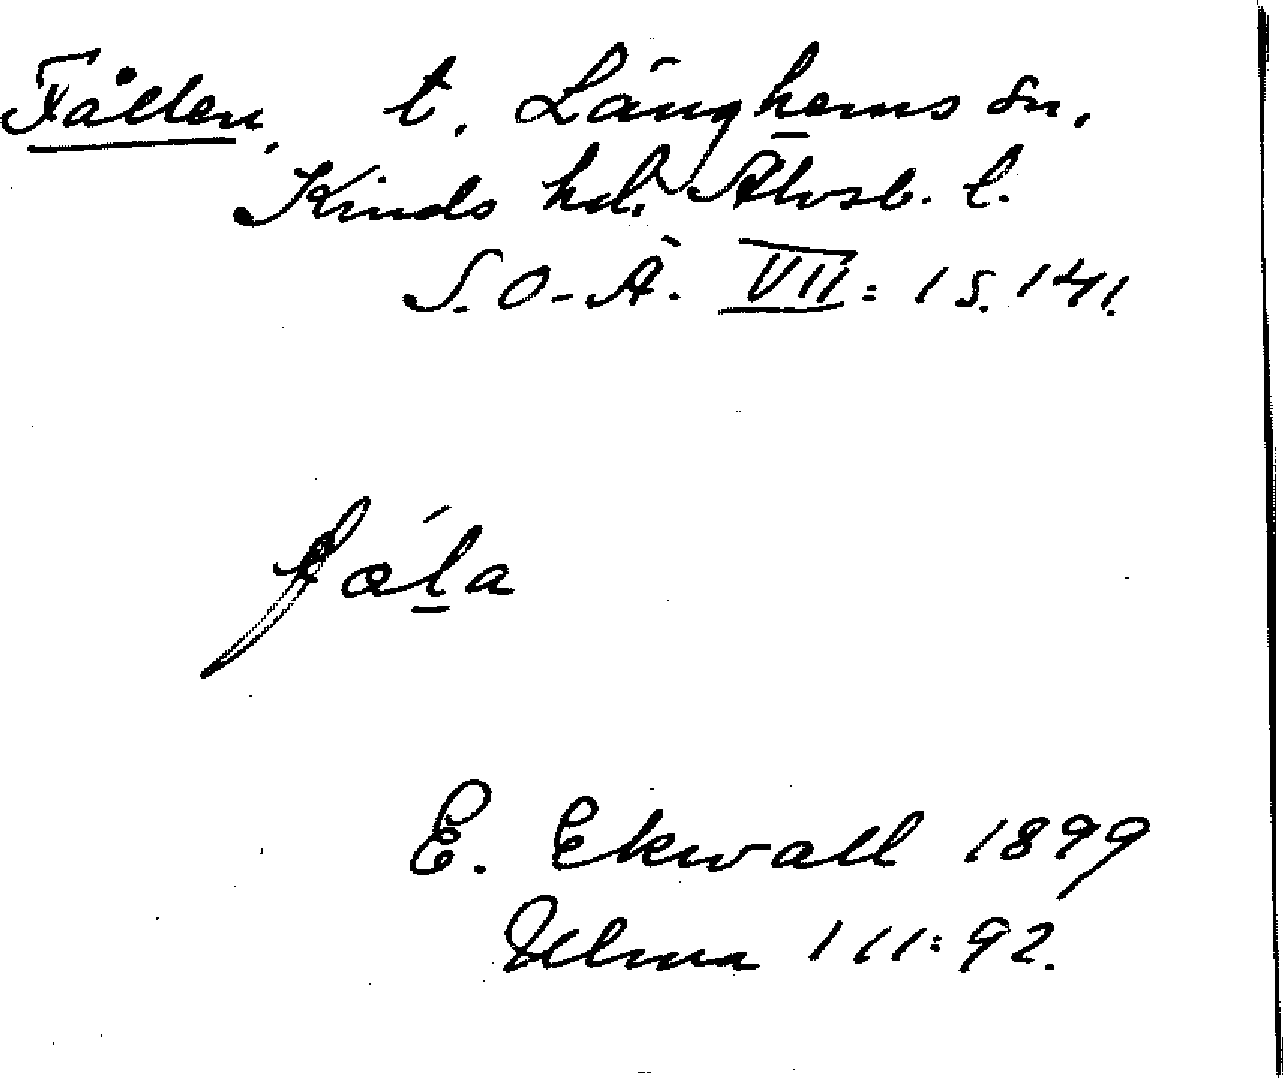 Fållen, t. Länghems sn,
Kinds hd. Älvsb. l.
S. O-Ä. VII: 1 s. 141.
fóla
E. Ekwall 1899
Ulma 111:92.